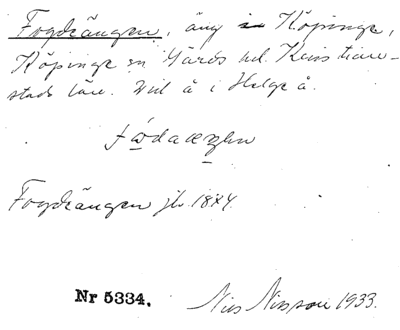 Fogdrängen, äng i Köpinge,
Köpinge sn Gärds hd. Kristian-
stads län. Vid å i Helge å.
Fogdrängen jb. 1874.
Nr 5334. Nils Nilsson 1933.